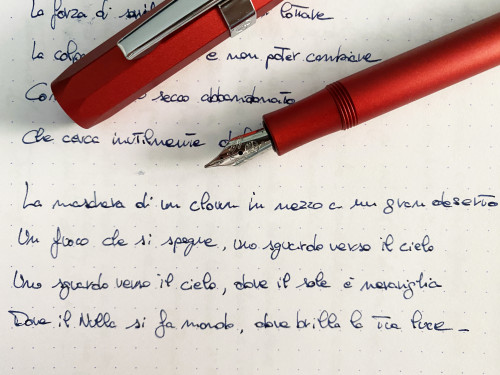 La forza di lottare
La colpa e non poter cambiare
secco abbandonato
Che cerca inutilmente
La maschera di un clown in mezzo a un gran deserto
Un fuoco che si spegne, uno sguardo verso il cielo
Uno sguardo verso il cielo, dove il sole è meraviglia
Dove il Nulla si fa mondo, dove brilla la tua luce_